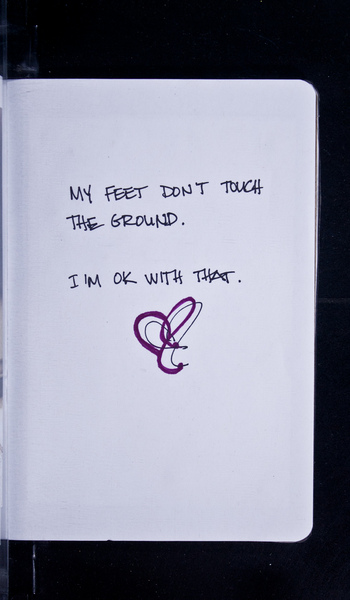 MY FEET DON'T TOUCH
THE GROUND.
I'M OK WITH THAT.